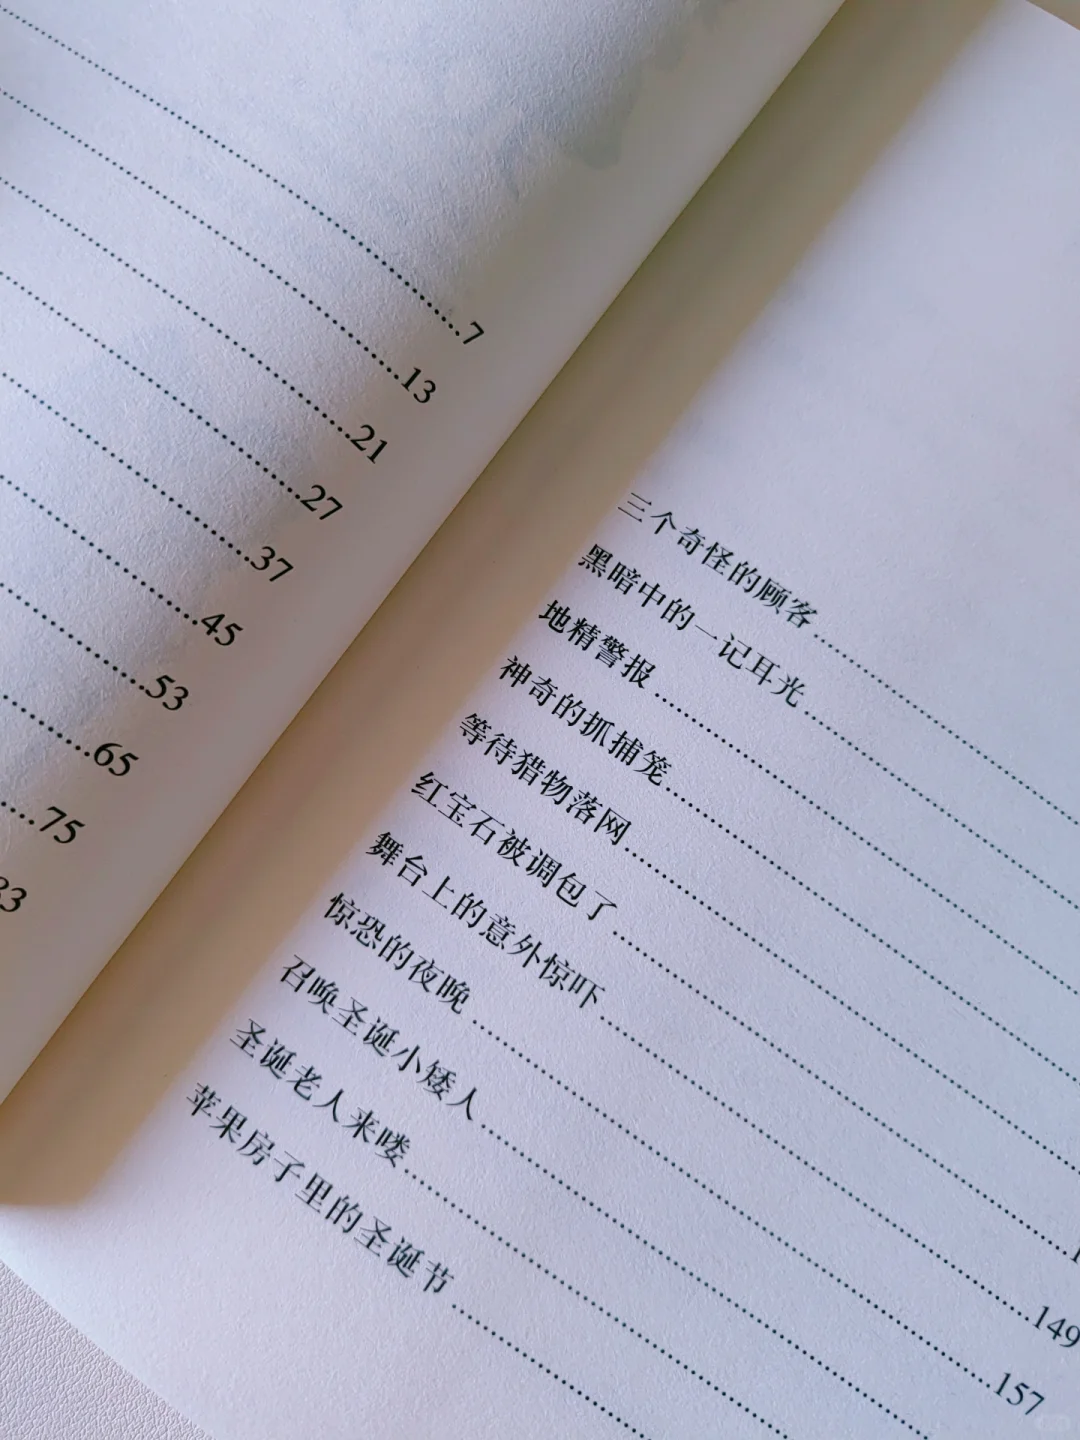 ......7
......13
......21
......27
......37
......45
......53
......65
......75
三个奇怪的顾客......
黑暗中的一记耳光......
地精警报......
神奇的抓捕笼......
等待猎物落网......
红宝石被调包了......
舞台上的意外惊吓......149
惊恐的夜晚......157
召唤圣诞小矮人......
圣诞老人来喽......
苹果房子里的圣诞节......